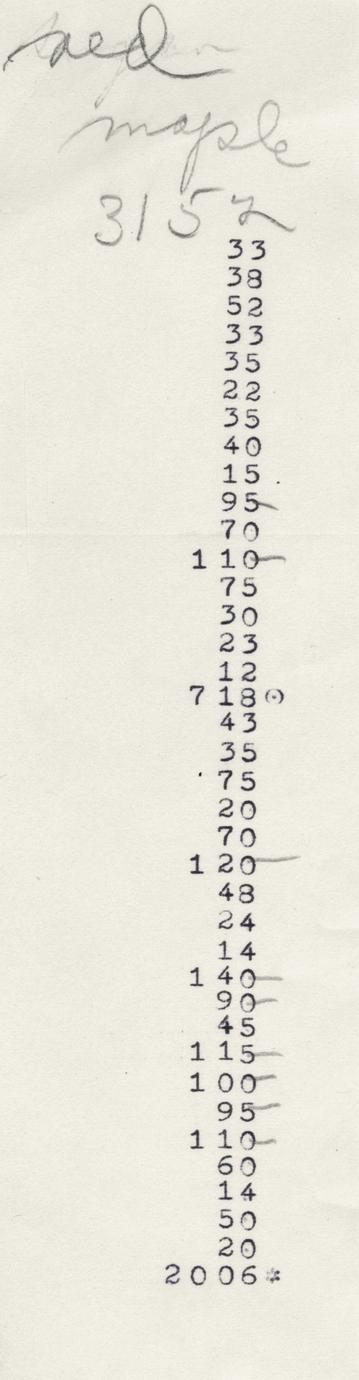 red
maple
3152
33
38
52
33
35
22
35
40
15
95
70
1 10
75
30
23
12
7 18⊙
43
35
75
20
70
1 20
48
24
14
1 40
90
45
1 15
1 00
95
1 10
60
14
50
20
2 0 06*